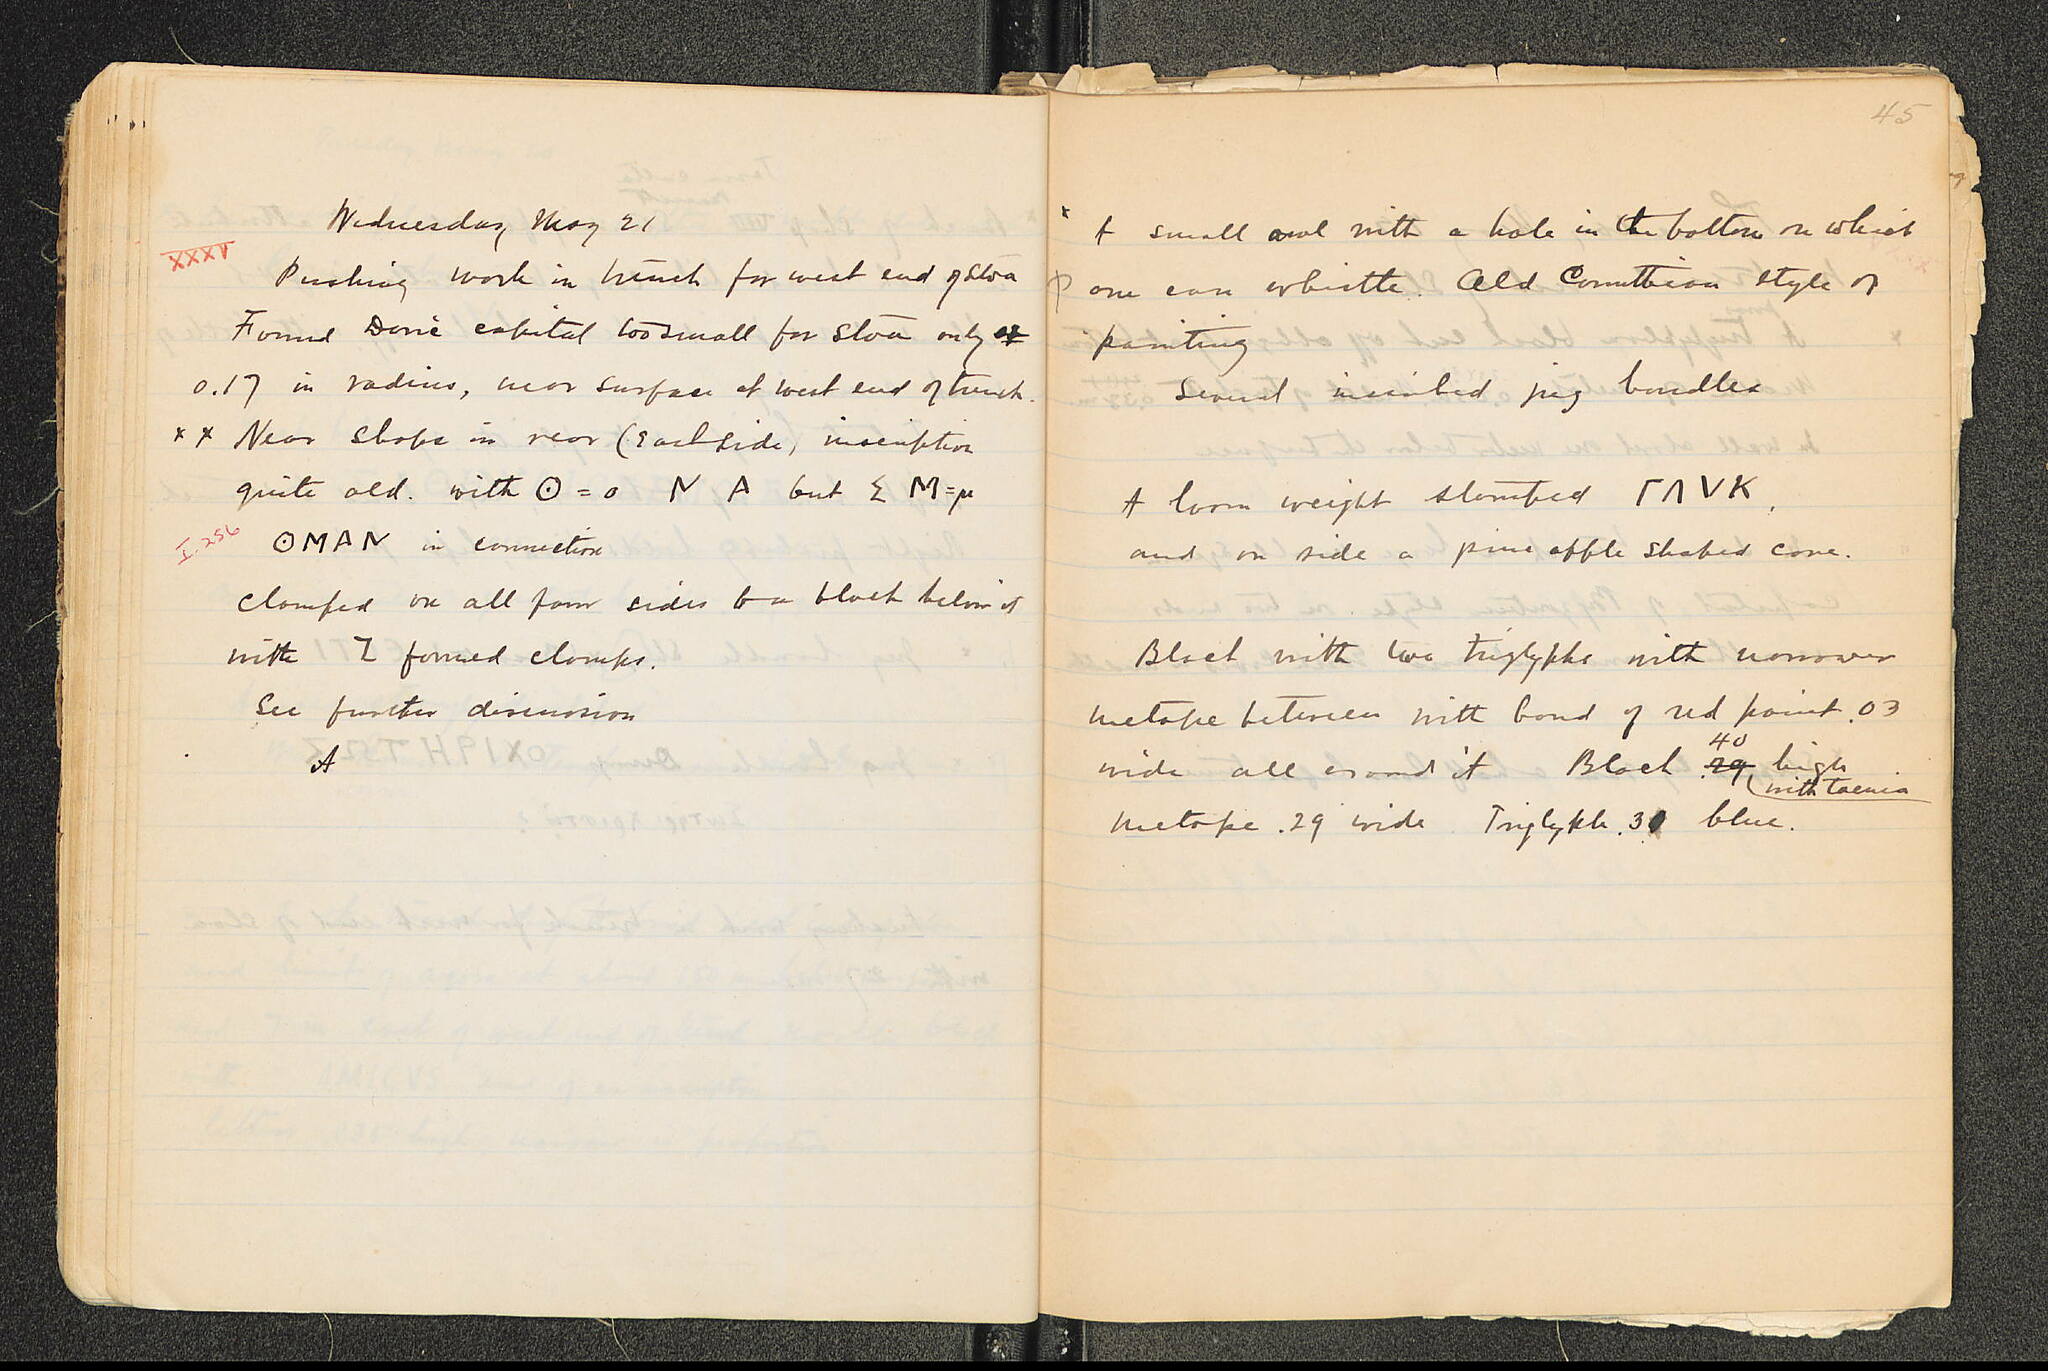 Wednesday May 21
XXXV
Pushing work in trench for west end of Stoa
Found Doric capital too small for Stoa only
0.17 in radius, near surface at west end of trench.
x x Near shops in rear (East side) inscription
quite old. with ⊙ = o N A but Σ M = μ
I. 256 ⊙MAN in connection
clamped on all four sides to a block below it
with Z formed clamps.
See further discussion
A
45
x A small owl with a hole in the bottom on which
one can whistle. Old Corinthian style of
painting
Several inscribed jug handles
A loom weight stamped ΓΛVK,
and on side a pine apple shaped cone.
Block with two triglyphs with narrower
metope between with band of red paint .03
wide all around it Block .29 40 high
with taenia
metope .29 wide Triglyph .30 blue.